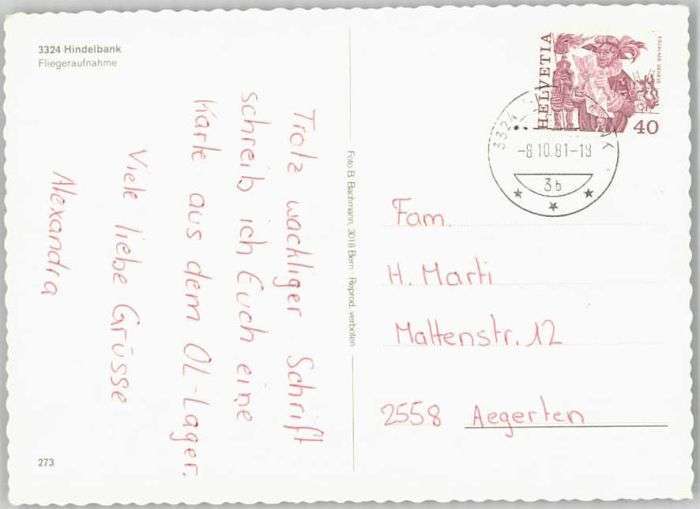 3324 Hindelbank
Fliegeraufnahme
Trotz wackliger Schrift
schreib ich Euch eine
Karte aus dem OL-Lager.
Viele liebe Grüsse
Alexandra
273
Foto B. Bachmann, 3018 Bern - Reprod. verboten
HELVETIA
40
3324
-8.10.81-18
3b
Fam.
H. Marti
Mattenstr. 12
2558 Aegerten